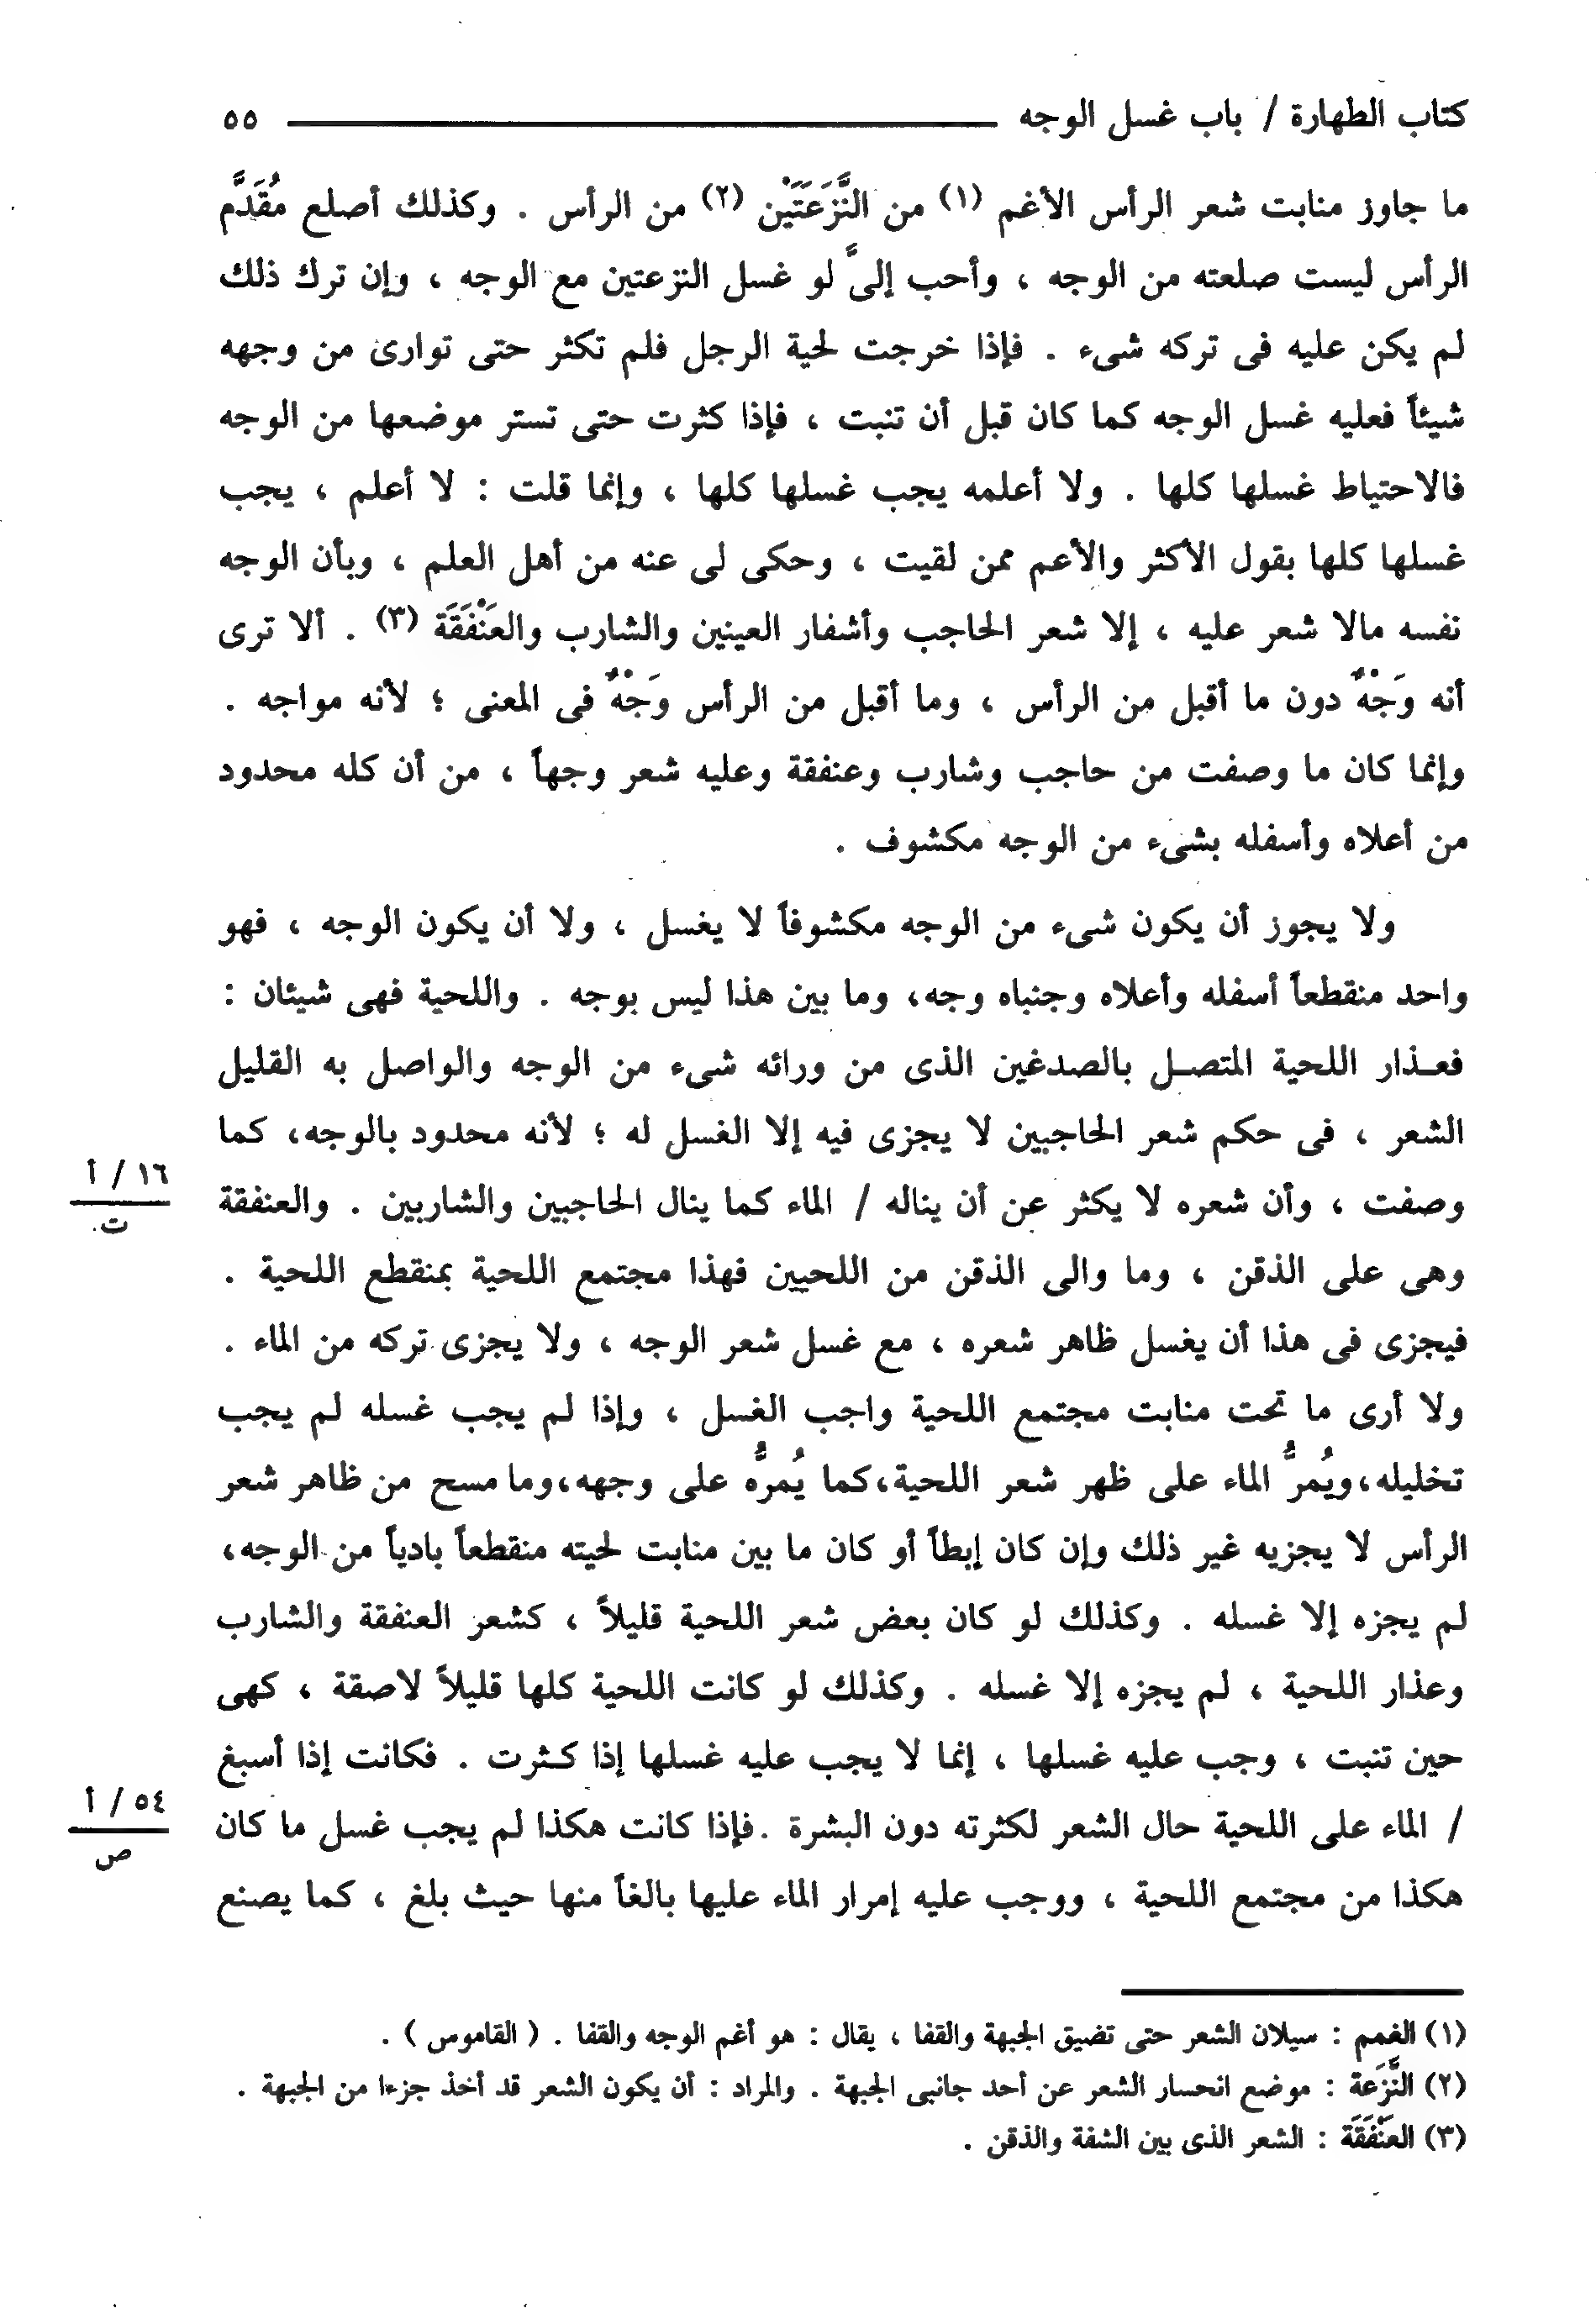 كتاب الطهارة / باب غسل الوجه ٥٥
ما جاوز منابت شعر الرأس الأغم (١) من النَّزَعَتَيْن (٢) من الرأس . وكذلك أصلع مُقَدَّم
الرأس ليست صلعته من الوجه ، وأحب إلىَّ لو غسل النزعتين مع الوجه ، وإن ترك ذلك
لم يكن عليه فى تركه شىء . فإذا خرجت لحية الرجل فلم تكثر حتى توارى من وجهه
شيئاً فعليه غسل الوجه كما كان قبل أن تنبت ، فإذا كثرت حتى تستر موضعها من الوجه
فالاحتياط غسلها كلها . ولا أعلمه يجب غسلها كلها ، وإنما قلت : لا أعلم ، يجب
غسلها كلها بقول الأكثر والأعم ممن لقيت ، وحكى لى عنه من أهل العلم ، وبأن الوجه
نفسه مالا شعر عليه ، إلا شعر الحاجب وأشفار العينين والشارب والعَنْفَقَة (٣) . ألا ترى
أنه وَجْهٌ دون ما أقبل من الرأس ، وما أقبل من الرأس وَجْهٌ فى المعنى ؛ لأنه مواجه .
وإنما كان ما وصفت من حاجب وشارب وعنفقة وعليه شعر وجهاً ، من أن كله محدود
من أعلاه وأسفله بشىء من الوجه مكشوف .
ولا يجوز أن يكون شىء من الوجه مكشوفاً لا يغسل ، ولا أن يكون الوجه ، فهو
واحد منقطعاً أسفله وأعلاه وجنباه وجه، وما بين هذا ليس بوجه . واللحية فهى شيئان :
فعـذار اللحية المتصـل بالصدغين الذى من ورائه شىء من الوجه والواصل به القليل
الشعر ، فى حكم شعر الحاجبين لا يجزى فيه إلا الغسل له ؛ لأنه محدود بالوجه، كما
١٦ / أ
ت
وصفت ، وأن شعره لا يكثر عن أن يناله / الماء كما ينال الحاجبين والشاربين . والعنفقة
وهى على الذقن ، وما والى الذقن من اللحيين فهذا مجتمع اللحية بمنقطع اللحية .
فيجزى فى هذا أن يغسل ظاهر شعره ، مع غسل شعر الوجه ، ولا يجزى تركه من الماء .
ولا أرى ما تحت منابت مجتمع اللحية واجب الغسل ، وإذا لم يجب غسله لم يجب
تخليله،ويُمرُّ الماء على ظهر شعر اللحية،كما يُمرُّه على وجهه،وما مسح من ظاهر شعر
الرأس لا يجزيه غير ذلك وإن كان إبطاً أو كان ما بين منابت لحيته منقطعاً بادياً من الوجه،
لم يجزه إلا غسله . وكذلك لو كان بعض شعر اللحية قليلاً ، كشعر العنفقة والشارب
وعذار اللحية ، لم يجزه إلا غسله . وكذلك لو كانت اللحية كلها قليلاً لاصقة ، كهى
حين تنبت ، وجب عليه غسلها ، إنما لا يجب عليه غسلها إذا كـثرت . فكانت إذا أسبغ
٥٤ / أ
ص
/ الماء على اللحية حال الشعر لكثرته دون البشرة .فإذا كانت هكذا لم يجب غسل ما كان
هكذا من مجتمع اللحية ، ووجب عليه إمرار الماء عليها بالغاً منها حيث بلغ ، كما يصنع
(١) الغمم : سيلان الشعر حتى تضيق الجبهة والقفا ، يقال : هو أغم الوجه والقفا . ( القاموس ) .
(٢) النَّزَعة : موضع انحسار الشعر عن أحد جانبى الجبهة . والمراد : أن يكون الشعر قد أخذ جزءا من الجبهة .
(٣) العَنْفَقَة : الشعر الذى بين الشفة والذقن .